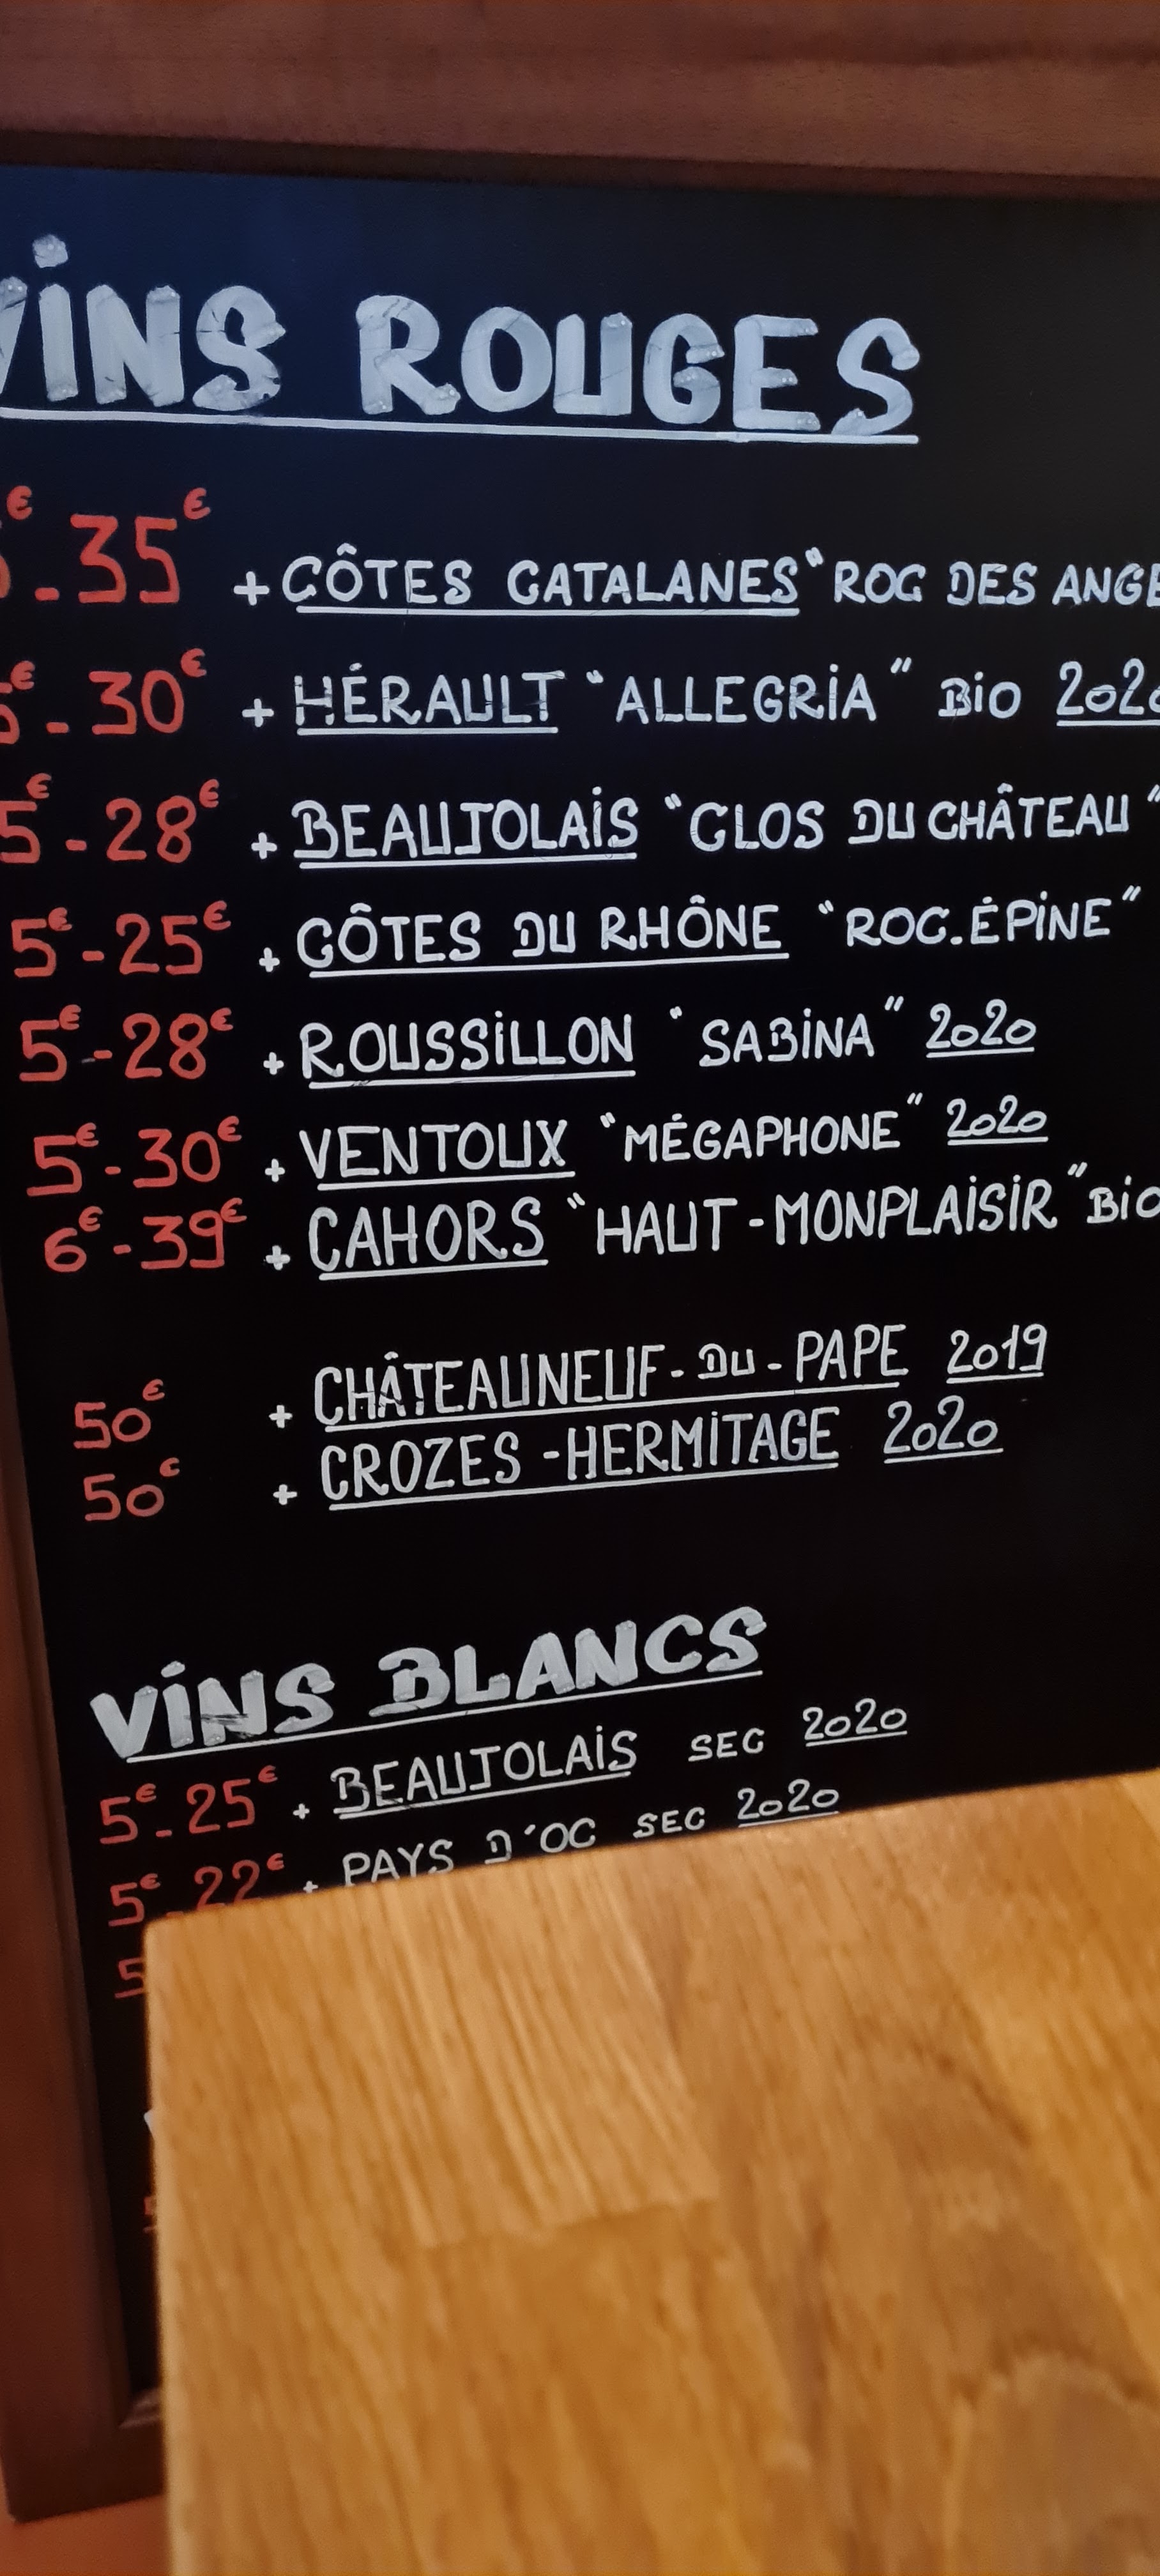 VINS ROUGES
€-35€ + CÔTES CATALANES "ROC DES ANGE
€-30€ + HÉRAULT "ALLEGRIA" BIO 2020
5€-28€ + BEAUJOLAIS "CLOS DU CHÂTEAU"
5€-25€ + CÔTES DU RHÔNE "ROC.ÉPINE"
5€-28€ + ROUSSILLON "SABINA" 2020
5€-30€ + VENTOUX "MÉGAPHONE" 2020
6€-39€ + CAHORS "HAUT-MONPLAISIR" BIO
50€ + CHÂTEAUNEUF-DU-PAPE 2019
50€ + CROZES-HERMITAGE 2020
VINS BLANCS
5€-25€ + BEAUJOLAIS SEC 2020
5€-22€ + PAYS D'OC SEC 2020
5